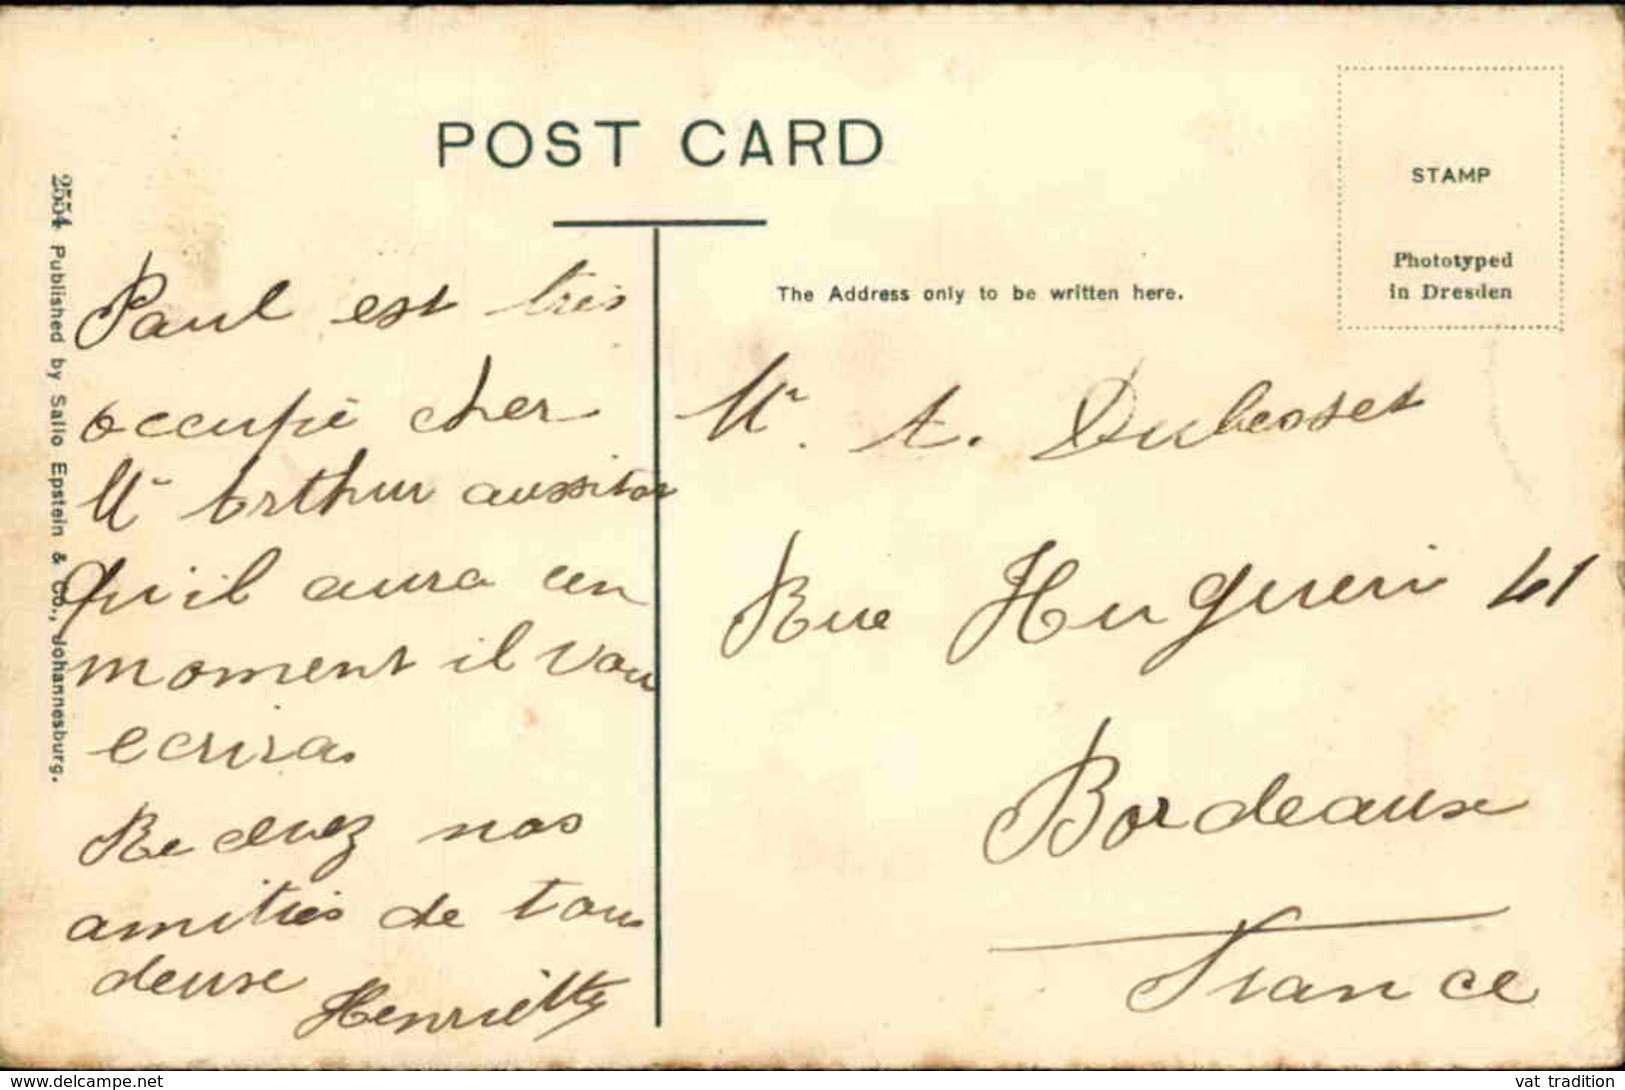 POST CARD
STAMP
Phototyped
in Dresden
The Address only to be written here.
2554 Published by Sallo Epstein & Co., Johannesburg.
Paul est très
occupé cher
Mr Arthur aussitot
qu'il aura un
moment il vous
ecriras
Recevez nos
amitiés de tous
deux
Henriette
Mr. A. Dubosset
Rue Hugueri 41
Bordeaux
France
www.delcampe.net
vat_tradition